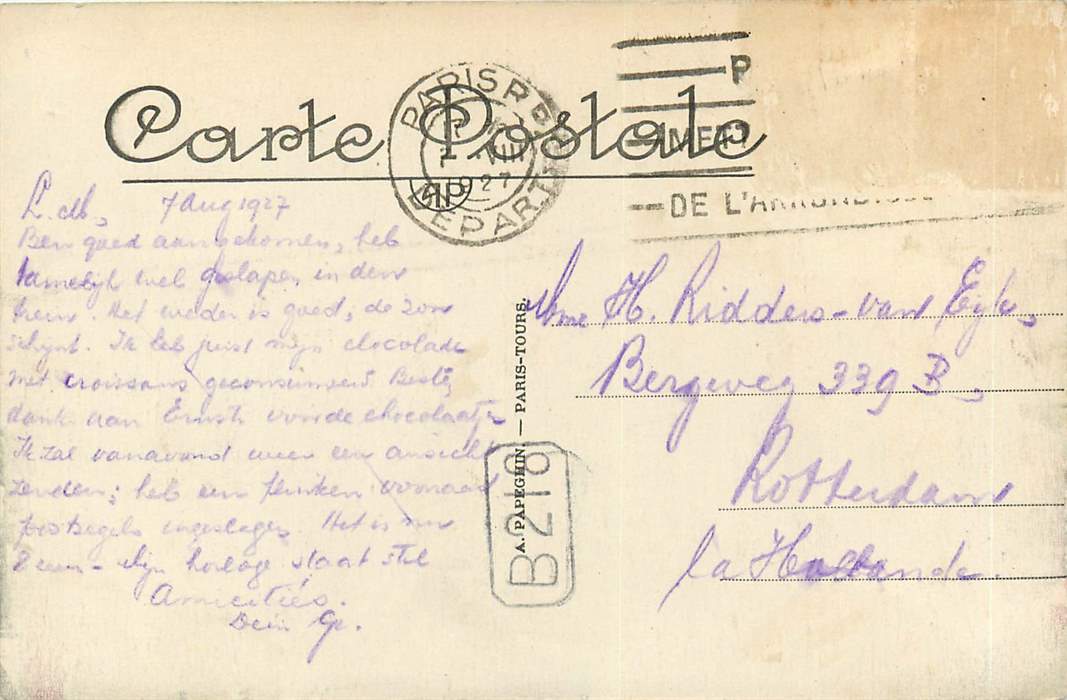 Carte Postale
PARIS R.P. DEPART
7 VIII
1927
P
MERT
DE L'ARRONDISSE
L. M., 7 Aug 1927
Ben goed aangekomen, heb
tamelijk wel geslapen in den
trein. Het weder is goed, de zon
schijnt. Ik heb juist mijn chocolade
met croissans geconsumeerd. Beste
dank aan Ernst voor de chocolaatjes
Ik zal vanavond weer een ansicht
zenden; heb een flinken voorraad
postzegels ingeslagen. Het is nu
8 uur - Mijn horloge staat stil
Amitiés.
Dein
A. PAPEGHIN. — PARIS-TOURS.
B218
Mme H. Ridders-van Eyk,
Bergweg 339 B,
Rotterdam
la Hollande.